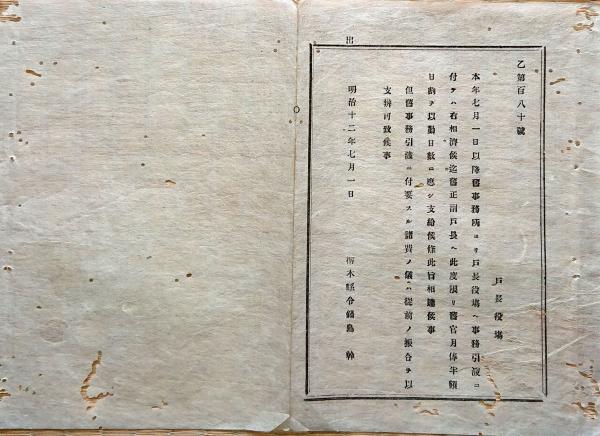 乙第百八十號
戸長役塲
本年七月一日以降舊事務所ヨリ戸長役塲ヘ事務引渡ニ
付テハ右相濟候迄舊正副戸長ヘ此度限リ舊官月俸半額
日割ヲ以勤日數ニ應シ支給候條此旨相達候事
但舊事務引渡ニ付要スル諸費ノ儀ハ從前ノ振合ヲ以
支拂可致候事
明治十二年七月一日
栃木縣令鍋島幹
出